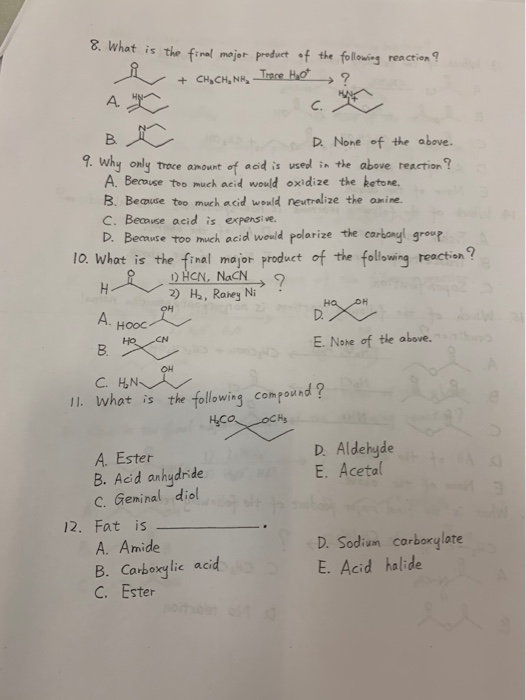 8. What is the final major product of the following reaction?
O
+ CH₃CH₂NH₂ Trace H₃O⁺ ?
A. HN
C.
B. N
D. None of the above.
9. Why only trace amount of acid is used in the above reaction?
A. Because too much acid would oxidize the ketone.
B. Because too much acid would neutralize the amine.
C. Because acid is expensive.
D. Because too much acid would polarize the carbonyl group
10. What is the final major product of the following reaction?
O
H 1) HCN, NaCN ?
2) H₂, Raney Ni
A. HOOC OH
D. HO OH
B. HO CN
E. None of the above.
C. H₂N OH
11. What is the following compound?
H₃CO OCH₃
A. Ester
D. Aldehyde
B. Acid anhydride
E. Acetal
C. Geminal diol
12. Fat is ________.
A. Amide
D. Sodium carboxylate
B. Carboxylic acid
E. Acid halide
C. Ester